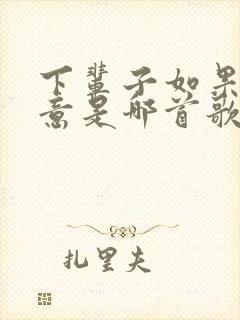 下辈子如果
意是哪首歌
扎里夫